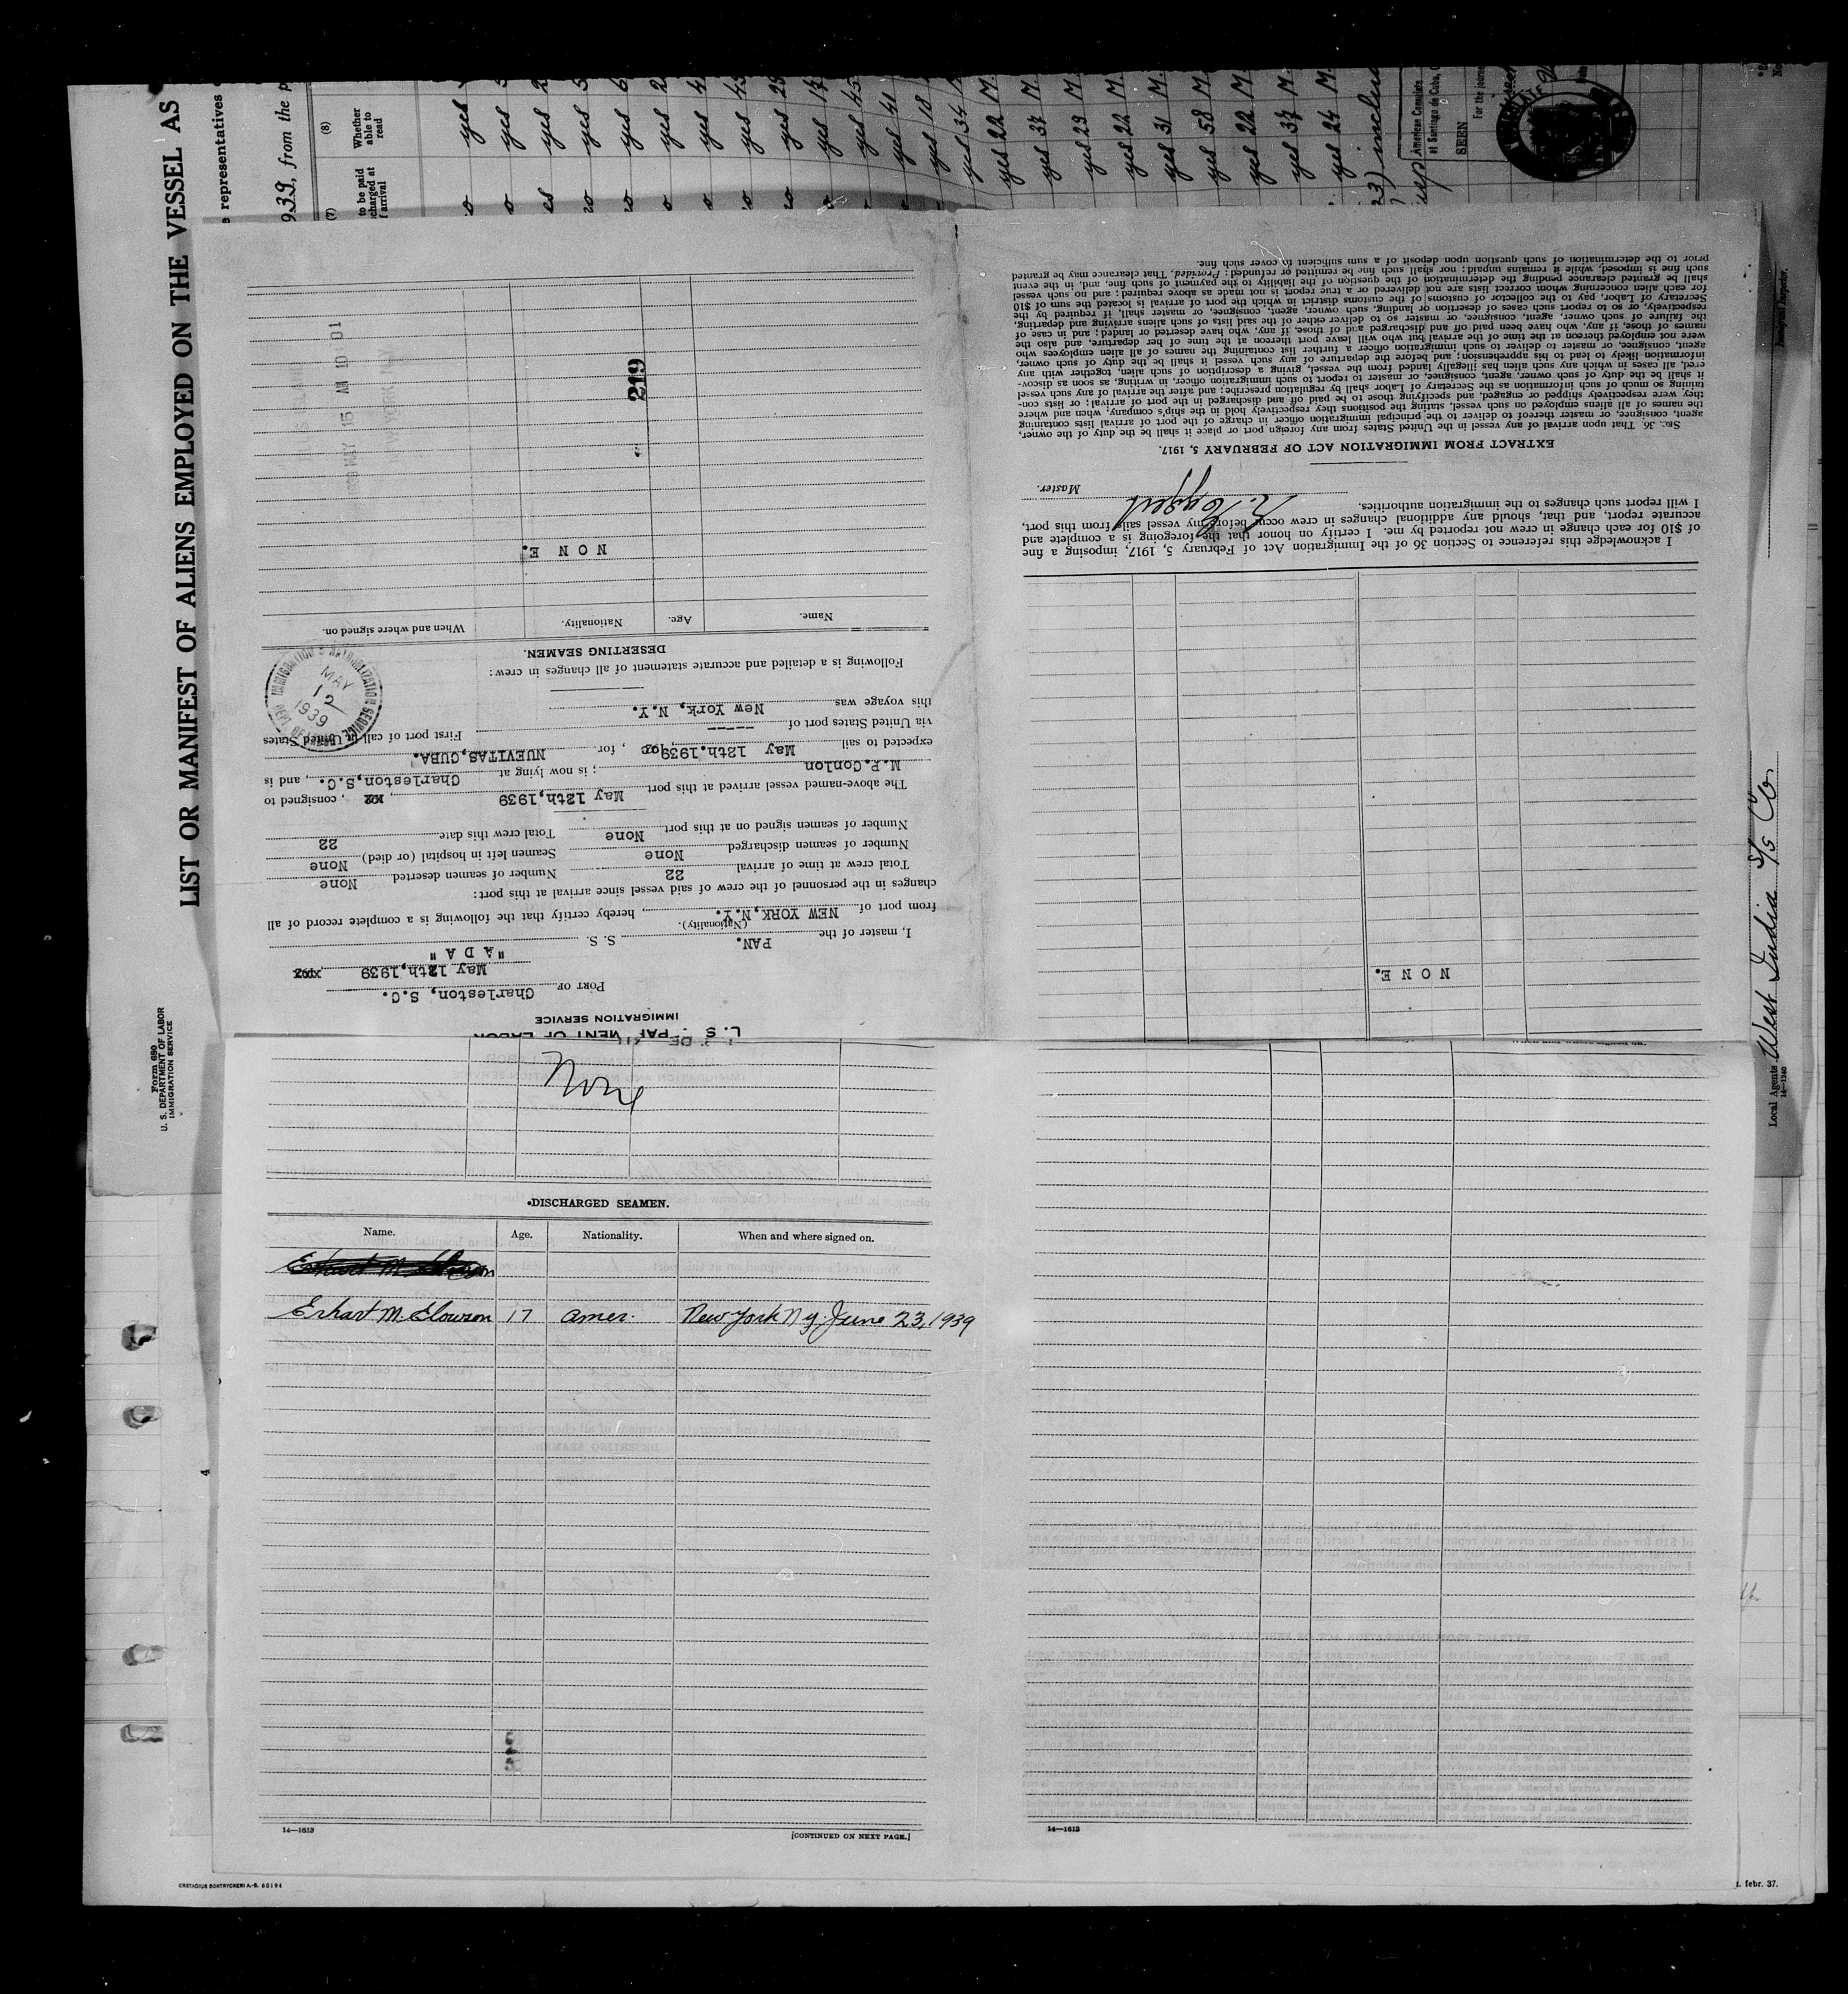 LIST OR MANIFEST OF ALIENS EMPLOYED ON THE VESSEL AS
Form 680
U. S. DEPARTMENT OF LABOR
IMMIGRATION SERVICE
representatives
939, from the p
(7)
to be paid
charged at
arrival
(8)
Whether
able to
read
yes
yes
yes
yes
yes
yes
yes
yes
yes
yes 17
yes 45
yes 41
yes 18
yes 34
yes 22 M.
yes 37 M.
yes 23 M.
yes 22 M.
yes 31 M.
yes 58 M.
yes 22 M.
yes 37 M.
yes 24 M.
American Consulate
at Santiago de Cuba,
SEEN
For the journey
Local Agents West India S/S Co.
14—1240
Immigrant Inspector.
IMMIGRATION SERVICE
PORT OF Charleston, S.C.
May 12th, 1939
"A D A"
I, master of the PAN. S. S.
(Nationality).
from port of NEW YORK, N.Y., hereby certify that the following is a complete record of all
changes in the personnel of the crew of said vessel since arrival at this port:
Total crew at time of arrival 22 Number of seamen deserted None
Number of seamen discharged None Seamen left in hospital (or died) None
Number of seamen signed on at this port None Total crew this date 22
The above-named vessel arrived at this port May 12th, 1939, consigned to
M.P. Conlon; is now lying at Charleston, S.C., and is
expected to sail May 12th. 1939, for NUEVITAS, CUBA.
via United States port of ---- First port of call in United States
this voyage was New York, N.Y.
IMMIGRATION & NATURALIZATION SERVICE
MAY
12
1939
Following is a detailed and accurate statement of all changes in crew:
DESERTING SEAMEN.
Name. Age. Nationality. When and where signed on.
N O N E.
219
1939 MAY 15 AM 10 01
N O N E.
I acknowledge this reference to Section 36 of the Immigration Act of February 5, 1917, imposing a fine
of $10 for each change in crew not reported by me. I certify on honor that the foregoing is a complete and
accurate report, and that, should any additional changes in crew occur before my vessel sails from this port,
I will report such changes to the immigration authorities.
Master.
EXTRACT FROM IMMIGRATION ACT OF FEBRUARY 5, 1917.
SEC. 36. That upon arrival of any vessel in the United States from any foreign port or place it shall be the duty of the owner,
agent, consignee, or master thereof to deliver to the principal immigration officer in charge of the port of arrival lists containing
the names of all aliens employed on such vessel, stating the positions they respectively hold in the ship's company, when and where
they were respectively shipped or engaged, and specifying those to be paid off and discharged in the port of arrival; or lists con-
taining so much of such information as the Secretary of Labor shall by regulation prescribe; and after the arrival of any such vessel
it shall be the duty of such owner, agent, consignee, or master to report to such immigration officer, in writing, as soon as discov-
ered, all cases in which any such alien has illegally landed from the vessel, giving a description of such alien, together with any
information likely to lead to his apprehension; and before the departure of any such vessel it shall be the duty of such owner,
agent, consignee, or master to deliver to such immigration officer a further list containing the names of all alien employees who
were not employed thereon at the time of the arrival but who will leave port thereon at the time of her departure, and also the
names of those, if any, who have been paid off and discharged and of those, if any, who have deserted or landed; and in case of
the failure of such owner, agent, consignee, or master so to deliver either of the said lists of such aliens arriving and departing,
respectively, or so to report such cases of desertion or landing, such owner, agent, consignee, or master shall, if required by the
Secretary of Labor, pay to the collector of customs of the customs district in which the port of arrival is located the sum of $10
for each alien concerning whom correct lists are not delivered or a true report is not made as above required; and no such vessel
shall be granted clearance pending the determination of the question of the liability to the payment of such fine, and, in the event
such fine is imposed, while it remains unpaid; nor shall such fine be remitted or refunded: Provided, That clearance may be granted
prior to the determination of such question upon deposit of a sum sufficient to cover such fine.
None
DISCHARGED SEAMEN.
Name. Age. Nationality. When and where signed on.
Erhart M. Clowson 17 Amer. New York N.Y. June 23, 1939
14—1613
[CONTINUED ON NEXT PAGE.]
14—1613
4
febr. 37.